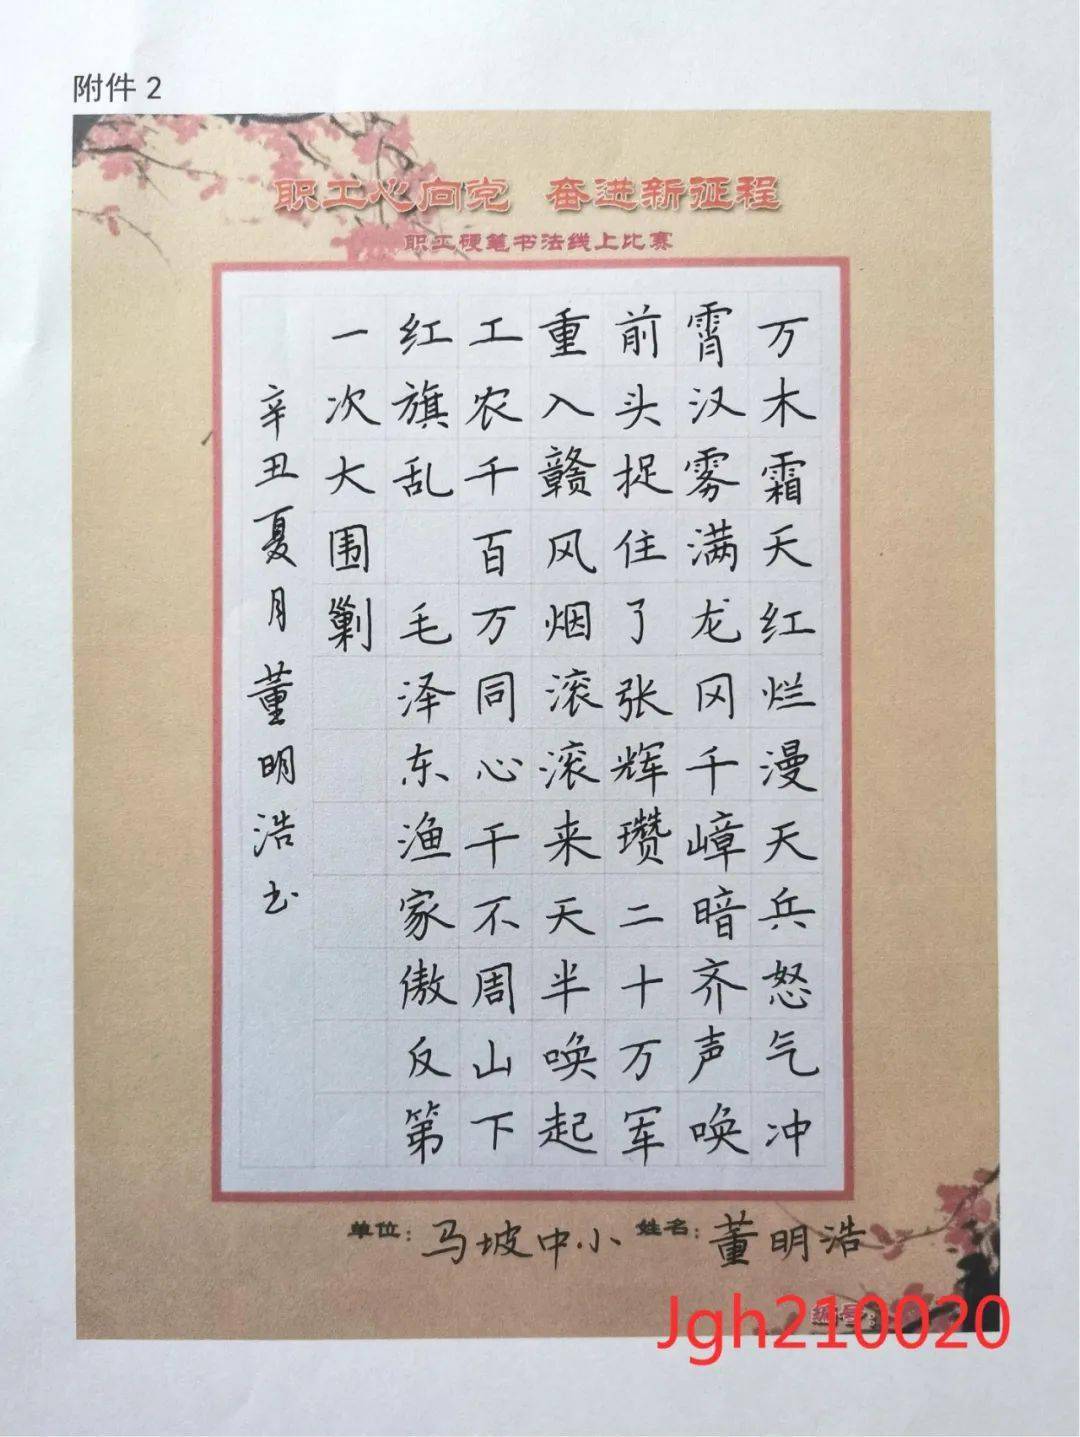 附件 2
职工心向党 奋进新征程
职工硬笔书法线上比赛
万木霜天红烂漫天兵怒气冲
霄汉雾满龙冈千嶂暗齐声唤
前头捉住了张辉瓒二十万军
重入赣风烟滚滚来天半唤起
工农千百万同心干不周山下
红旗乱 毛泽东渔家傲反第
一次大围剿
辛丑夏月董明浩书
单位：马坡中小 姓名：董明浩
编号：
Jgh210020